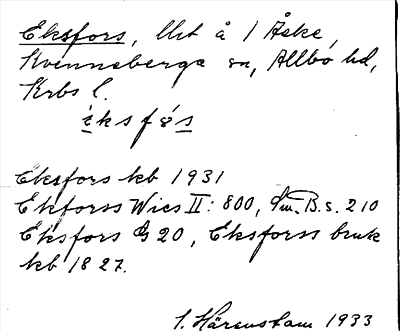 Eksfors, lht å 1 Åske,
Kvenneberga sn, Allbo hd,
Krbs l.
èksfo̍s
Eksfors kb 1931
Ekforss Wies II: 800, Sm. B. s. 210
Eksfors G 20, Eksforss bruk
kb 1827.
I. Härenstam 1933